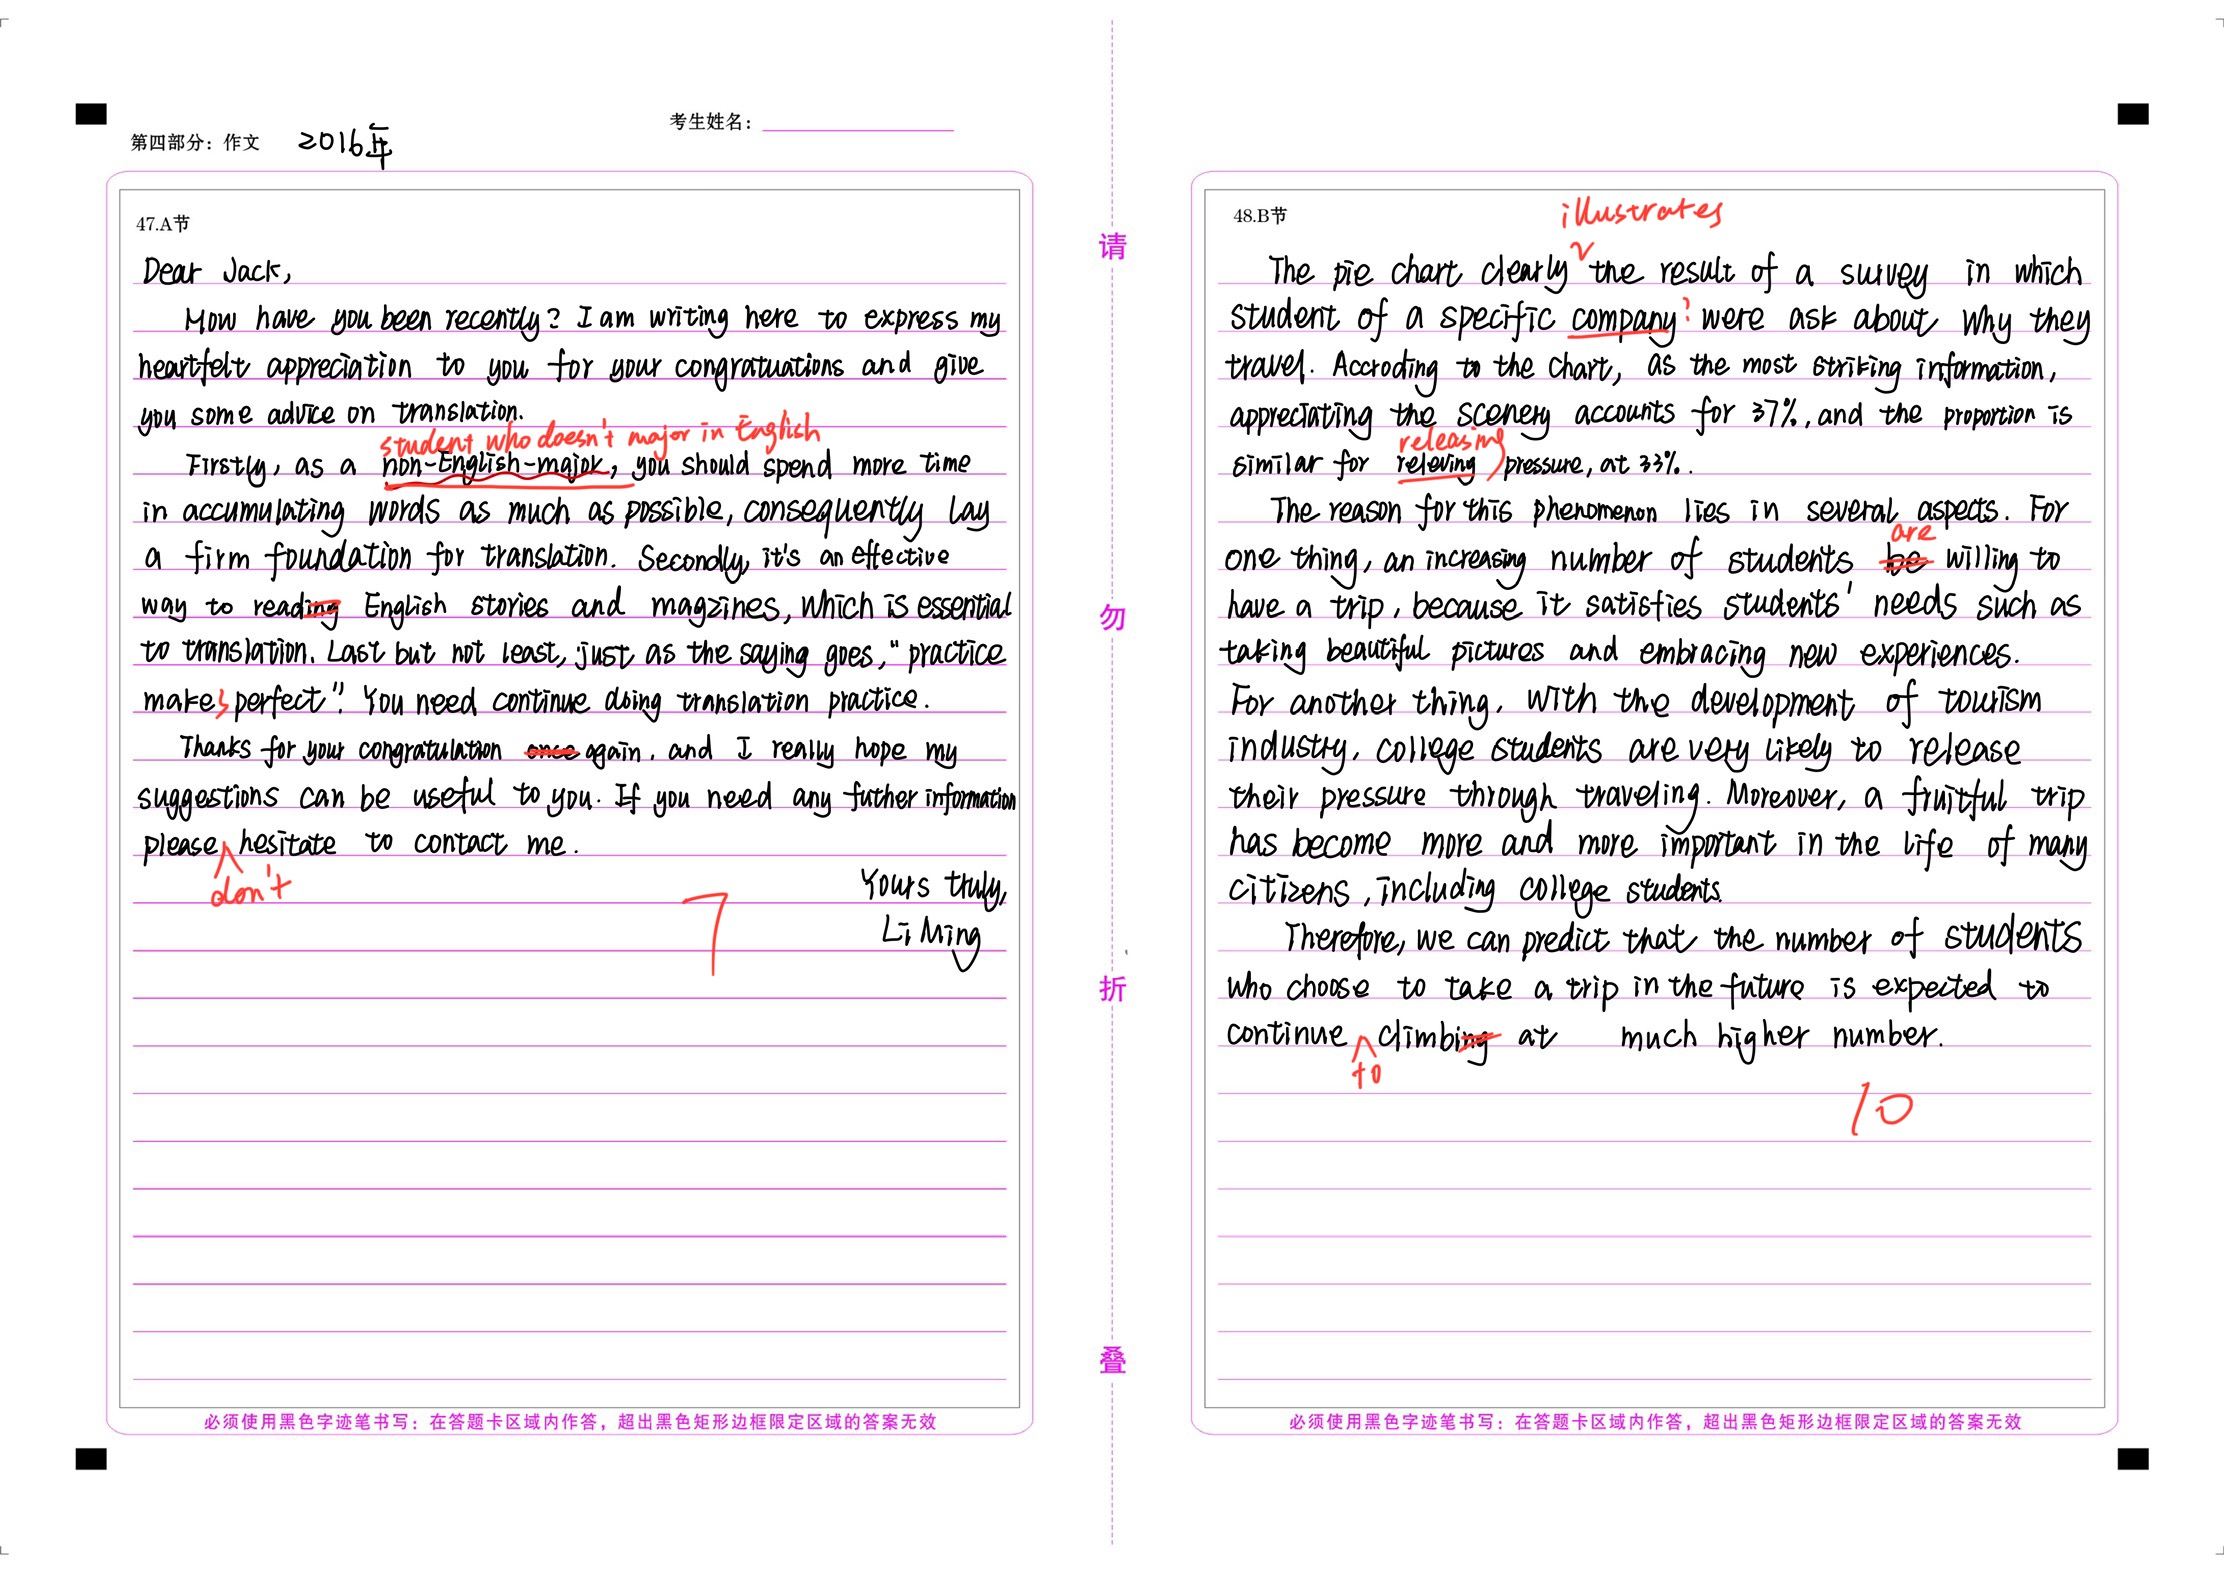 考生姓名：
第四部分：作文 2016年
47.A节
Dear Jack,
How have you been recently? I am writing here to express my
heartfelt appreciation to you for your congratuations and give
you some advice on translation.
student who doesn't major in English
Firstly, as a non-English-major, you should spend more time
in accumulating words as much as possible, consequently lay
a firm foundation for translation. Secondly, it's an effective
way to reading English stories and magzines, which is essential
to translation. Last but not least, just as the saying goes, "practice
makes perfect". You need continue doing translation practice.
Thanks for your congratulation once again, and I really hope my
suggestions can be useful to you. If you need any futher information
please hesitate to contact me.
don't
Yours truly,
Li Ming
7
必须使用黑色字迹笔书写：在答题卡区域内作答，超出黑色矩形边框限定区域的答案无效
请
勿
折
叠
48.B节
illustrates
The pie chart clearly the result of a survey in which
student of a specific company ? were ask about why they
travel. Accroding to the chart, as the most striking information,
appreciating the scenery accounts for 37%, and the proportion is
releasing
similar for releving pressure, at 33%.
The reason for this phenomenon lies in several aspects. For
are
one thing, an increasing number of students be willing to
have a trip, because it satisfies students' needs such as
taking beautiful pictures and embracing new experiences.
For another thing, with the development of tourism
industry, college students are very likely to release
their pressure through traveling. Moreover, a fruitful trip
has become more and more important in the life of many
citizens, including college students.
Therefore, we can predict that the number of students
who choose to take a trip in the future is expected to
continue climbing at much higher number.
to
10
必须使用黑色字迹笔书写：在答题卡区域内作答，超出黑色矩形边框限定区域的答案无效